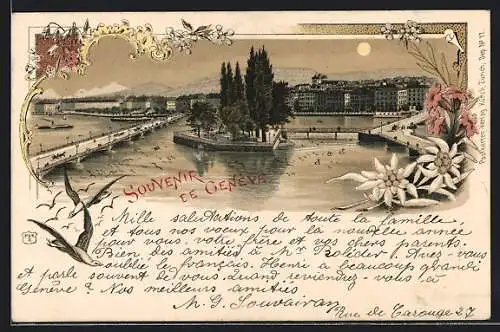 SOUVENIR
DE GENÈVE
Mille salutations de toute la famille
et tous nos voeux pour la nouvelle année
pour vous, votre frère et vos chers parents.
Bien des amitiés à Mr Avez-vous
oublié le français. Henri a beaucoup grandi
et parle souvent de vous. Quand reviendrez-vous à
Genève? Nos meilleurs amitiés
M. G. Souvairan
Rue de Carouge 27
Postkarten Verlag Künzli, Zürich, Dep. No 11.